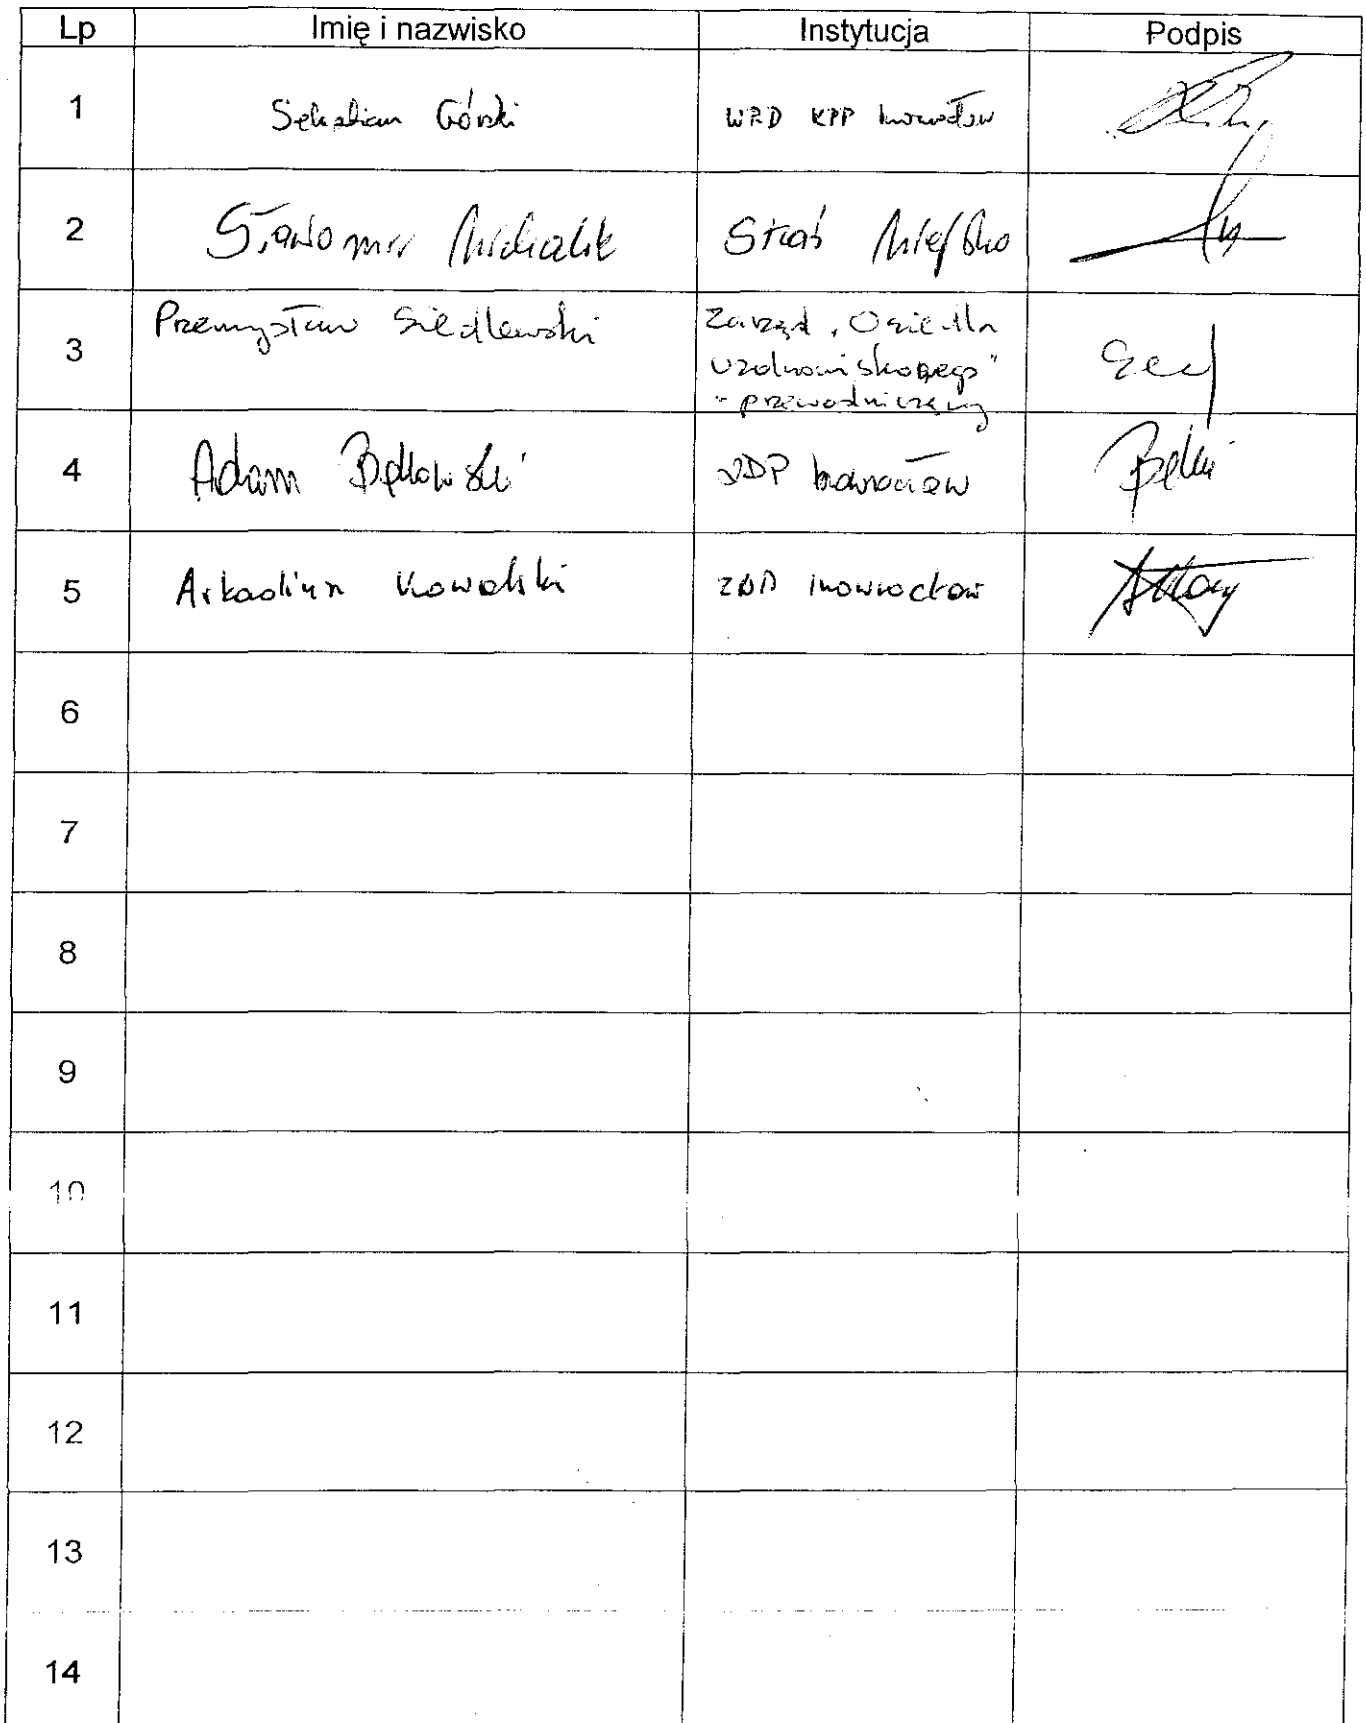 Lp Imię i nazwisko Instytucja Podpis
1 Sebastian Górski WRD KPP Inowrocław
2 Sławomir Michalik Straż Miejska
3 Przemysław Siedlewski Zarząd „Osiedla
Uzdrowiskowego"
- przewodniczący
4 Adam Będkowski ZDP Inowrocław
5 Arkadiusz Kowalski ZDP Inowrocław
6
7
8
9
10
11
12
13
14